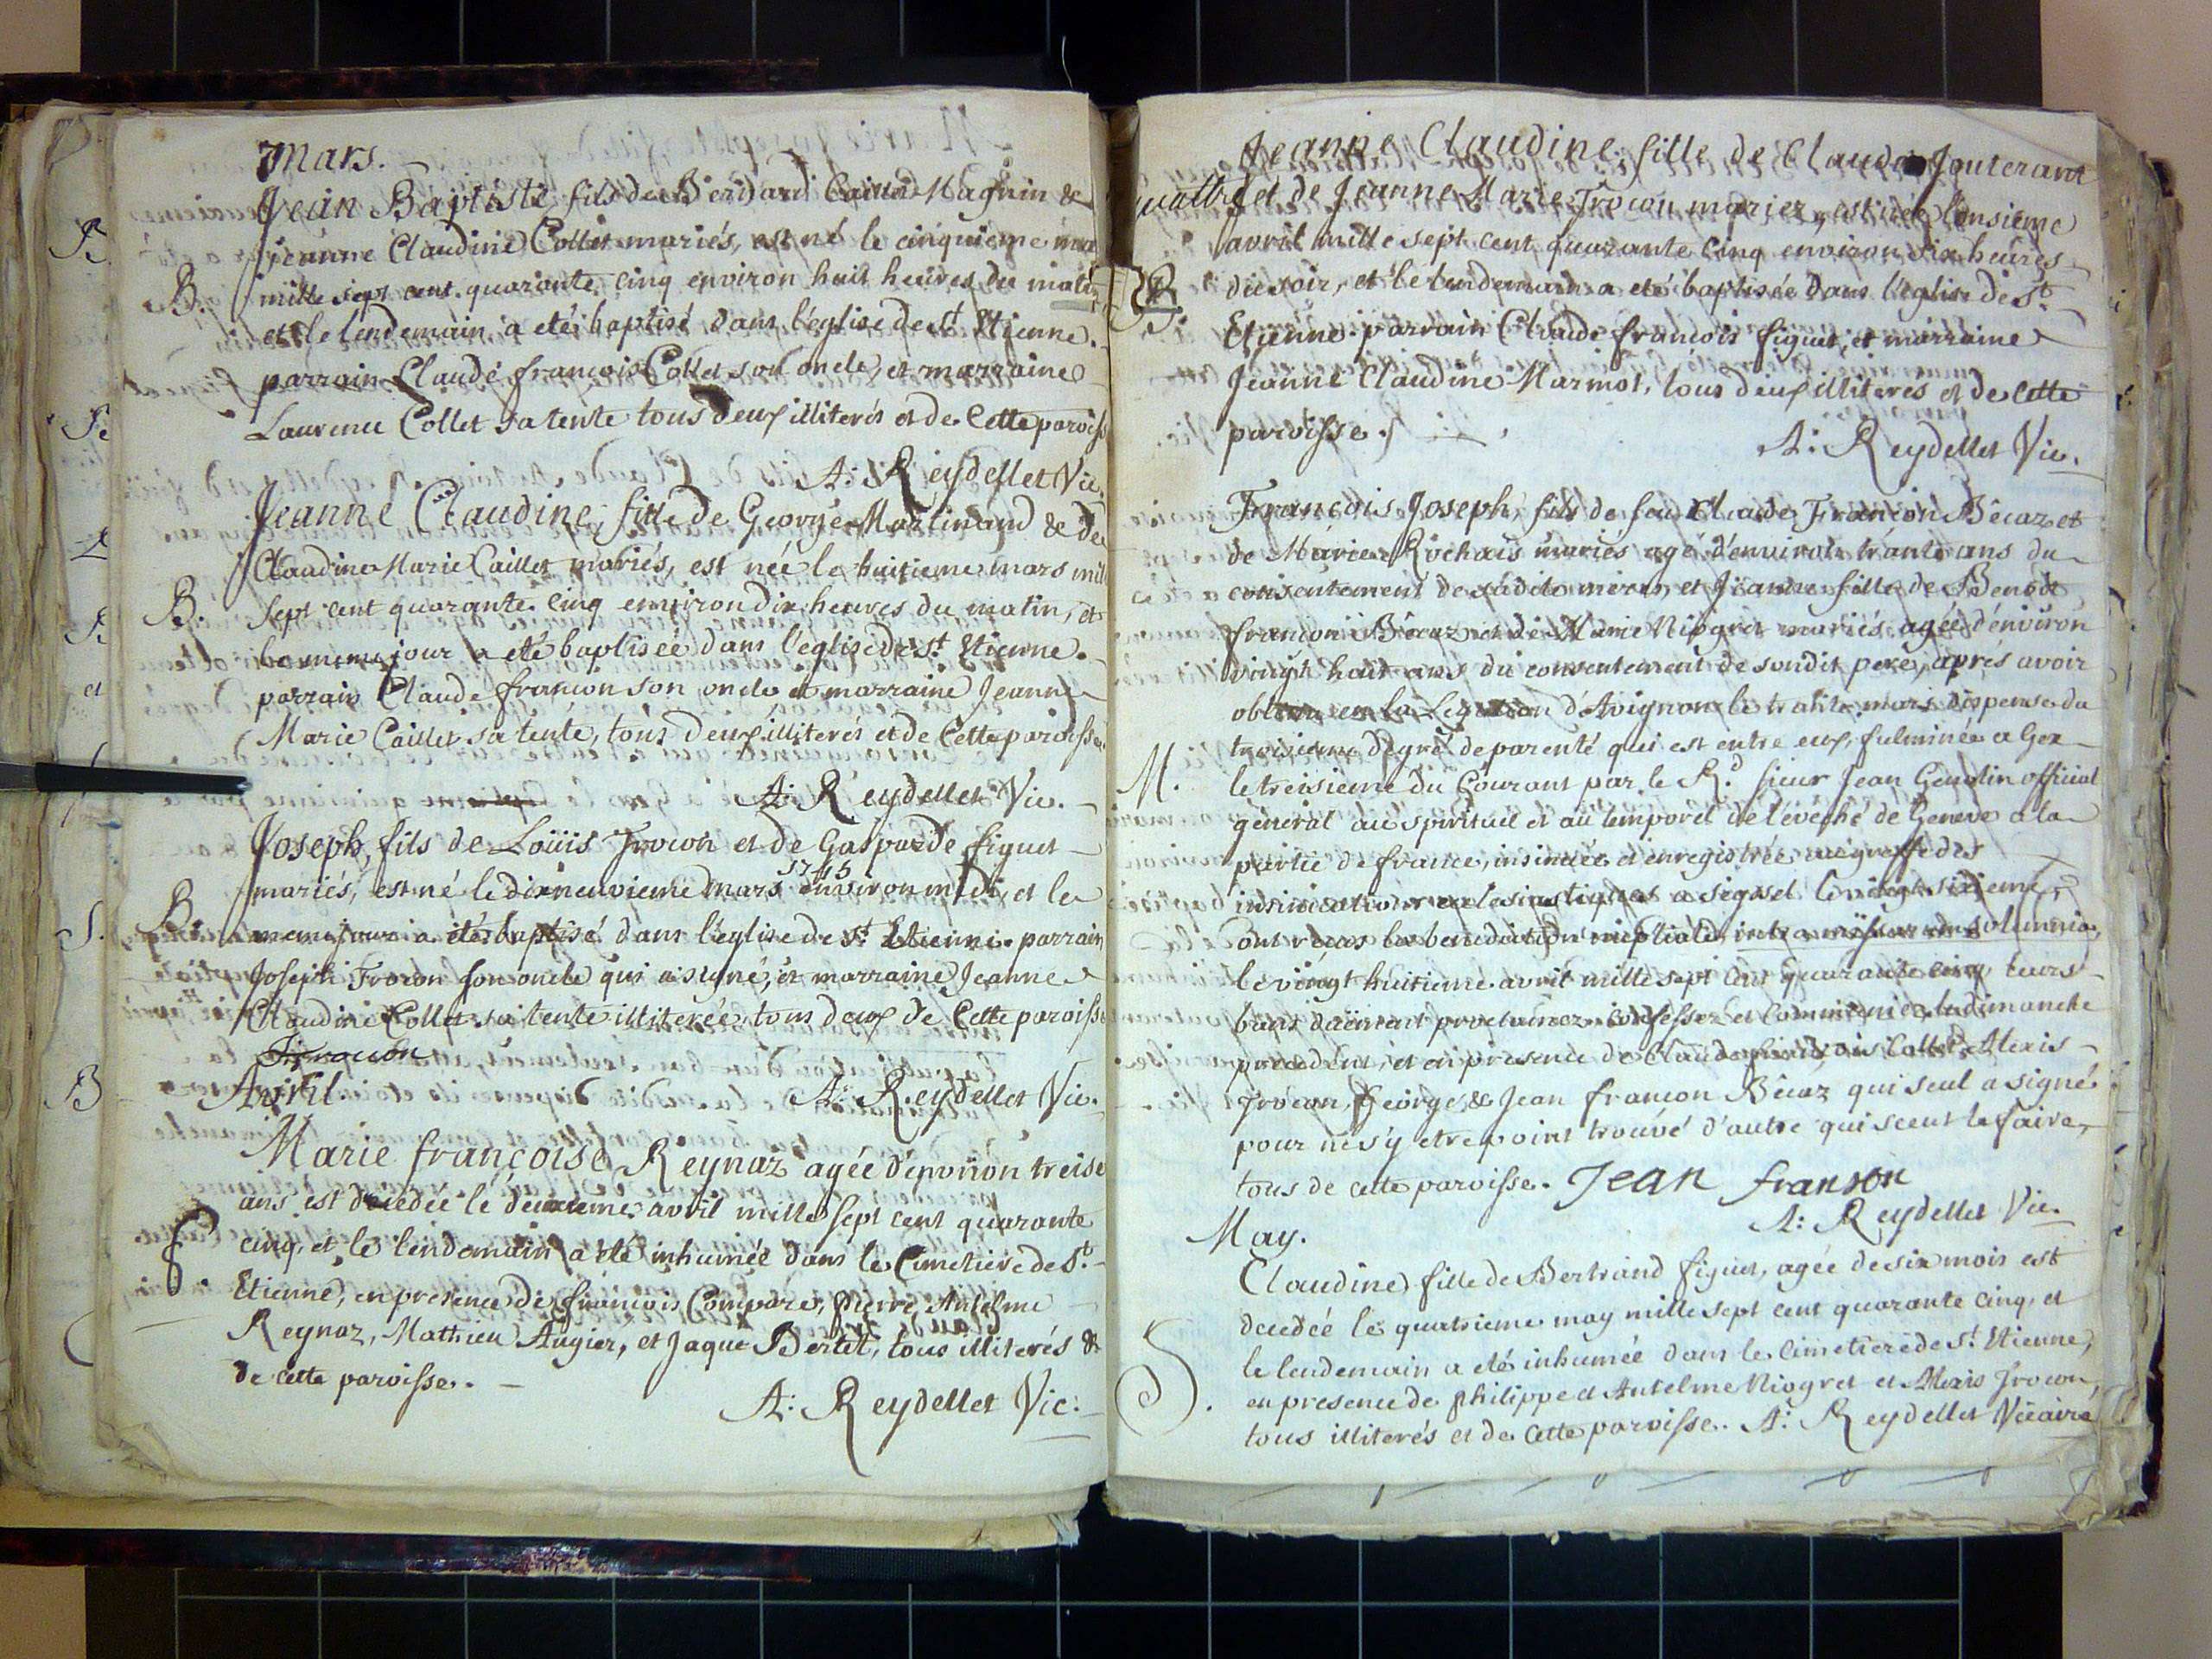 Mars.
Jean Baptiste fils de Bernard Caillet Magnin &
Jeanne Claudine Collet mariés, est né le cinquieme mar
B. mille sept cent quarante cinq environ huit heures du matin,
et le lendemain a eté baptisé dans l'eglise de St Etienne.
parrain Claude françois Collet son oncle, et marraine
Laurence Collet sa tente tous deux illiterés et de Cette paroiss
A: Reydellet Vic.
Jeanne Claudine, fille de George Martinand & de
Claudine Marie Caillet mariés, est née le huitieme mars mill
B. sept cent quarante cinq environ dix heures du matin, et
le meme jour a eté baptisée dans l'eglise de St Etienne.
parrain Claude françon son oncle et marraine Jeanne
Marie Caillet sa tente, tous deux illiterés et de Cette paroisse.
A: Reydellet Vic.
Joseph, fils de Loüis Frocon et de Gasparde figuet
mariés, est né le dixneuvieme mars 1745 environ midi, et le
B. meme jour a eté baptisé dans l'eglise de St Etienne. parrain
Joseph Frocon son oncle qui a signé, et marraine Jeanne
Claudine Collet sa tente illiterée, tous deux de Cette paroisse
J frocon
Avril. A: Reydellet Vic.
Marie françoise Reynaz agée d'environ treise
ans est decedée le deuxieme avril mille sept cent quarante
cinq, et le lendemain a eté inhumée dans le Cimetiere de St.
S. Etienne, en presence de françois Compare, pierre Antelme
Reynaz, Mathieu Augier, et Jaque Bertet, tous illiterés &
de cette paroisse.
A: Reydellet Vic:
Jeanne Claudine, fille de Claude Jouterant
et de Jeanne Marie Frocon mariez, est née l'onsieme
avril mille sept cent quarante cinq environ six heures
B. du soir, et le lendemain a eté baptisée dans l'eglise de St.
Etienne. parrain Claude françois figuet, et marraine
Jeanne Claudine Marmot, tous deux illiteres et de Cette
paroisse.
A: Reydellet Vic.
François Joseph, fils de feu Claude Françon Bécaz et
de Marie Rochaix mariés agé d'environ trante ans du
consentement de sadite mere, et Jeanne fille de Benoit
françon Bécaz et de Marie Niogret mariés agée d'environ
vingt huit ans du consentement de sondit pere, aprés avoir
obtenu en la Legation d'Avignon le trante mars dispense du
troisieme degré de parenté qui est entre eux, fulminée a Gex
M. le treisieme du Courant par le Rd. sieur Jean Genolin official
général au spirituel et au temporel de l'évêché de Geneve a la
partie de france, insinuée et enregistrée au greffe des
insinuations ecclesiastiques a seyssel le vingt sixieme,
ont reçus la benediction nuptiale intra missarum solemnia,
le vingt huitieme avril mille sept cent quarante cinq, leurs
bans duëment proclamez, confessez et communiez le dimanche
precedent, et en presence de Claude françois Collet, Alexis
frocon, George & Jean françon Bécaz qui seul a signé
pour ne s'y etre point trouvé d'autre qui sceut le faire,
tous de cette paroisse. Jean franson
A: Reydellet Vic.
May.
Claudine fille de Bertrand figuet, agée de six mois est
decedée le quatrieme may mille sept cent quarante cinq, et
le lendemain a eté inhumée dans le cimetiere de St. Etienne,
S. en presence de philippe et Antelme Niogret et Alexis Frocon,
tous illiterés et de Cette paroisse. A: Reydellet Vicaire